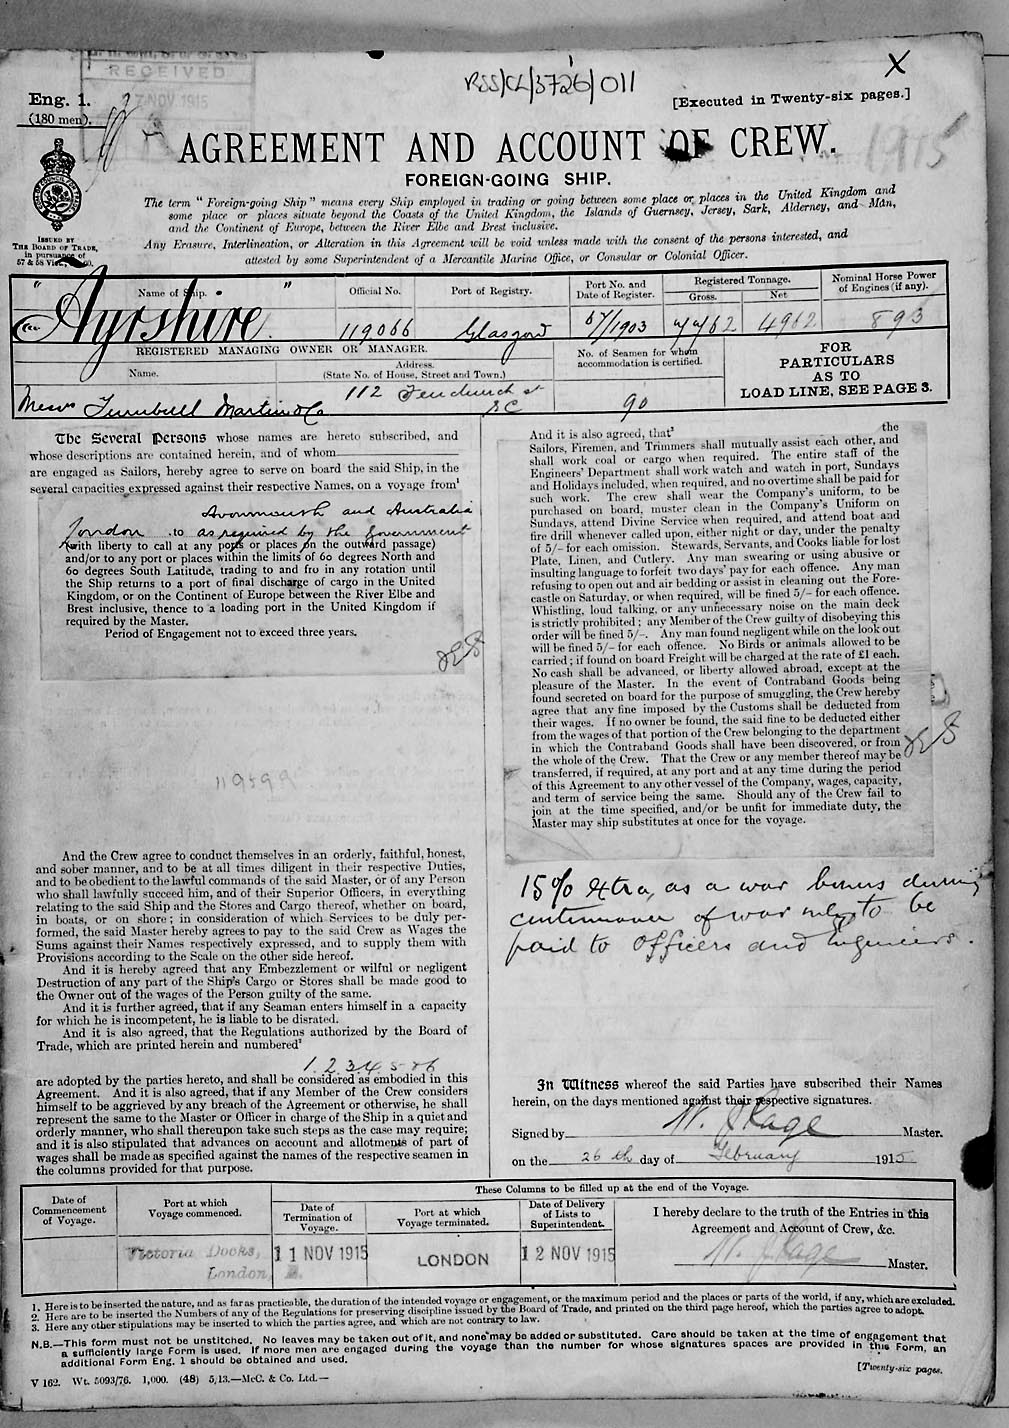 RECEIVED
NOV 1915
RSS/CL/3726/011
X
Eng. 1.
(180 men).
[Executed in Twenty-six pages.]
AGREEMENT AND ACCOUNT OF CREW.
1915
FOREIGN-GOING SHIP.
ISSUED BY
THE BOARD OF TRADE,
in pursuance of
57 & 58 Vict., 60.
The term "Foreign-going Ship" means every Ship employed in trading or going between some place or places in the United Kingdom and
some place or places situate beyond the Coasts of the United Kingdom, the Islands of Guernsey, Jersey, Sark, Alderney, and Man,
and the Continent of Europe, between the River Elbe and Brest inclusive.
Any Erasure, Interlineation, or Alteration in this Agreement will be void unless made with the consent of the persons interested, and
attested by some Superintendent of a Mercantile Marine Office, or Consular or Colonial Officer.
Name of Ship. Official No. Port of Registry. Port No. and Date of Register. Registered Tonnage. Gross. Net Nominal Horse Power of Engines (if any).
"Ayrshire" 119066 Glasgow 67/1903 7762 4962 893
REGISTERED MANAGING OWNER OR MANAGER.
Name. Address. (State No. of House, Street and Town.)
No. of Seamen for whom accommodation is certified.
FOR
PARTICULARS
AS TO
LOAD LINE, SEE PAGE 3.
Messrs Turnbull Martin & Co 112 Fenchurch St E C 90
The Several Persons whose names are hereto subscribed, and
whose descriptions are contained herein, and of whom
are engaged as Sailors, hereby agree to serve on board the said Ship, in the
several capacities expressed against their respective Names, on a voyage from¹
Avonmouth and Australia
London to as required by the Government
(with liberty to call at any ports or places on the outward passage)
and/or to any port or places within the limits of 60 degrees North and
60 degrees South Latitude, trading to and fro in any rotation until
the Ship returns to a port of final discharge of cargo in the United
Kingdom, or on the Continent of Europe between the River Elbe and
Brest inclusive, thence to a loading port in the United Kingdom if
required by the Master.
Period of Engagement not to exceed three years.
And the Crew agree to conduct themselves in an orderly, faithful, honest,
and sober manner, and to be at all times diligent in their respective Duties,
and to be obedient to the lawful commands of the said Master, or of any Person
who shall lawfully succeed him, and of their Superior Officers, in everything
relating to the said Ship and the Stores and Cargo thereof, whether on board,
in boats, or on shore; in consideration of which Services to be duly per-
formed, the said Master hereby agrees to pay to the said Crew as Wages the
Sums against their Names respectively expressed, and to supply them with
Provisions according to the Scale on the other side hereof.
And it is hereby agreed that any Embezzlement or wilful or negligent
Destruction of any part of the Ship's Cargo or Stores shall be made good to
the Owner out of the wages of the Person guilty of the same.
And it is further agreed, that if any Seaman enters himself in a capacity
for which he is incompetent, he is liable to be disrated.
And it is also agreed, that the Regulations authorized by the Board of
Trade, which are printed herein and numbered²
1. 2. 3 4. 5 & 6
are adopted by the parties hereto, and shall be considered as embodied in this
Agreement. And it is also agreed, that if any Member of the Crew considers
himself to be aggrieved by any breach of the Agreement or otherwise, he shall
represent the same to the Master or Officer in charge of the Ship in a quiet and
orderly manner, who shall thereupon take such steps as the case may require;
and it is also stipulated that advances on account and allotments of part of
wages shall be made as specified against the names of the respective seamen in
the columns provided for that purpose.
And it is also agreed, that³ the
Sailors, Firemen, and Trimmers shall mutually assist each other, and
shall work coal or cargo when required. The entire staff of the
Engineers' Department shall work watch and watch in port, Sundays
and Holidays included, when required, and no overtime shall be paid for
such work. The crew shall wear the Company's uniform, to be
purchased on board, muster clean in the Company's Uniform on
Sundays, attend Divine Service when required, and attend boat and
fire drill whenever called upon, either night or day, under the penalty
of 5/- for each omission. Stewards, Servants, and Cooks liable for lost
Plate, Linen, and Cutlery. Any man swearing or using abusive or
insulting language to forfeit two days' pay for each offence. Any man
refusing to open out and air bedding or assist in cleaning out the Fore-
castle on Saturday, or when required, will be fined 5/- for each offence.
Whistling, loud talking, or any unnecessary noise on the main deck
is strictly prohibited; any Member of the Crew guilty of disobeying this
order will be fined 5/-. Any man found negligent while on the look out
will be fined 5/- for each offence. No Birds or animals allowed to be
carried; if found on board Freight will be charged at the rate of £1 each.
No cash shall be advanced, or liberty allowed abroad, except at the
pleasure of the Master. In the event of Contraband Goods being
found secreted on board for the purpose of smuggling, the Crew hereby
agree that any fine imposed by the Customs shall be deducted from
their wages. If no owner be found, the said fine to be deducted either
from the wages of that portion of the Crew belonging to the department
in which the Contraband Goods shall have been discovered, or from
the whole of the Crew. That the Crew or any member thereof may be
transferred, if required, at any port and at any time during the period
of this Agreement to any other vessel of the Company, wages, capacity,
and term of service being the same. Should any of the Crew fail to
join at the time specified, and/or be unfit for immediate duty, the
Master may ship substitutes at once for the voyage.
15% extra, as a war bonus during
continuance of war only to be
paid to Officers and Engineers.
In Witness whereof the said Parties have subscribed their Names
herein, on the days mentioned against their respective signatures.
Signed by W. J. Page Master.
on the 26th day of February 1915
Date of Commencement of Voyage. Port at which Voyage commenced.
These Columns to be filled up at the end of the Voyage.
Date of Termination of Voyage. Port at which Voyage terminated. Date of Delivery of Lists to Superintendent.
I hereby declare to the truth of the Entries in this
Agreement and Account of Crew, &c.
Victoria Docks, London, E. 11 NOV 1915 LONDON 12 NOV 1915
W. J. Page Master.
1. Here is to be inserted the nature, and as far as practicable, the duration of the intended voyage or engagement, or the maximum period and the places or parts of the world, if any, which are excluded.
2. Here are to be inserted the Numbers of any of the Regulations for preserving discipline issued by the Board of Trade, and printed on the third page hereof, which the parties agree to adopt.
3. Here any other stipulations may be inserted to which the parties agree, and which are not contrary to law.
N.B.—This form must not be unstitched. No leaves may be taken out of it, and none may be added or substituted. Care should be taken at the time of engagement that
a sufficiently large Form is used. If more men are engaged during the voyage than the number for whose signatures spaces are provided in this Form, an
additional Form Eng. 1 should be obtained and used.
[Twenty-six pages.
V 162. Wt. 5093/76. 1,000. (48) 5/13.—McC. & Co. Ltd.—